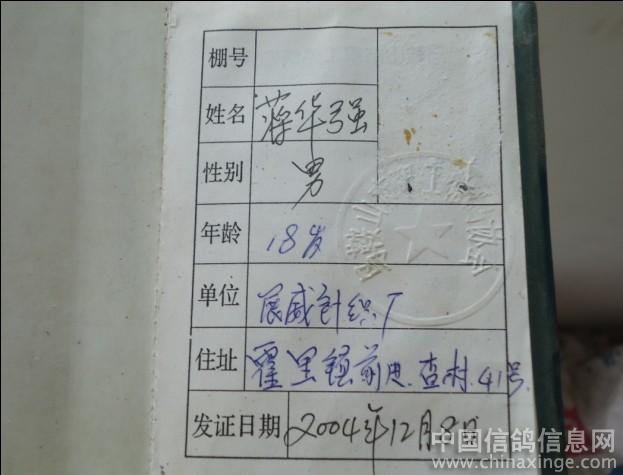 棚号
姓名 蒋华强
性别 男
年龄 18岁
单位 展威针织厂
住址 霍里镇前进.查村.41号
发证日期 2004年12月8日
中国信鸽信息网
www.chinaxinge.com